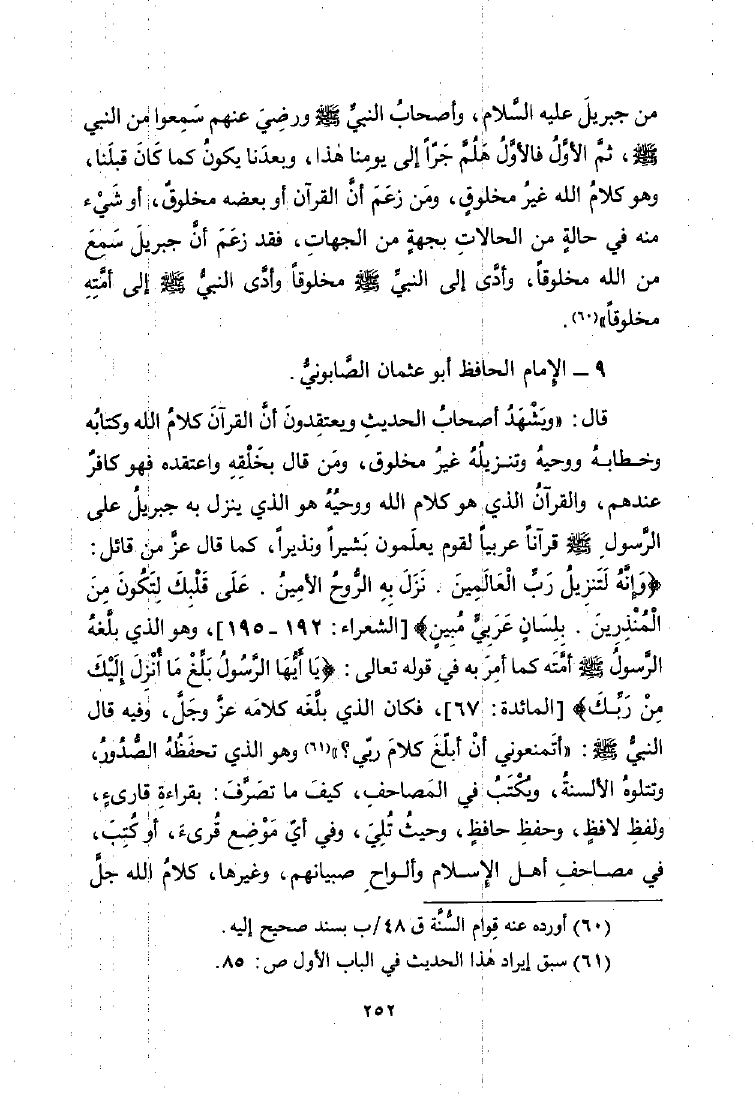 من جبريلَ عليه السَّلام، وأصحابُ النبيِّ ﷺ ورضِيَ عنهم سَمِعوا من النبي
ﷺ، ثمَّ الأوَّلُ فالأوَّلُ هَلُمَّ جَرّاً إلى يومِنا هٰذا، وبعدَنا يكونُ كما كَانَ قبلَنا،
وهو كلامُ الله غيرُ مخلوقٍ، ومَن زعَمَ أنَّ القرآن أو بعضه مخلوقٌ، أو شَيْء
منه في حالةٍ من الحالاتِ بجهةٍ من الجهاتِ، فقد زعَمَ أنَّ جبريلَ سَمِعَ
من الله مخلوقاً، وأدَّى إلى النبيِّ ﷺ مخلوقاً وأدَّى النبيُّ ﷺ إلى أمَّتِهِ
مخلوقاً»(٦٠).
٩ ـ الإمام الحافظ أبو عثمان الصَّابونيُّ.
قال: «ويَشْهَدُ أصحابُ الحديثِ ويعتقِدونَ أنَّ القرآنَ كلامُ الله وكتابُه
وخطابـهُ ووحيهُ وتنـزيلُهُ غيرُ مخلوق، ومَن قال بخَلْقِهِ واعتقده فهو كافرٌ
عندهم، والقرآنُ الذي هو كلام الله ووحيُهُ هو الذي ينزل به جبريلُ على
الرَّسولِ ﷺ قرآناً عربياً لقوم يعلَمون بَشيراً ونذيراً، كما قال عزَّ من قائل:
﴿وَإِنَّهُ لَتَنزِيلُ رَبِّ الْعَالَمِينَ. نَزَلَ بِهِ الرُّوحُ الأمِينُ. عَلَى قَلْبِكَ لِتَكُونَ مِنَ
الْمُنْذِرِينَ. بِلِسَانٍ عَرَبِيٍّ مُبِينٍ﴾ [الشعراء: ١٩٢ ـ ١٩٥]، وهو الذي بلَّغهُ
الرَّسولُ ﷺ أمَّتَه كما أمِرَ به في قوله تعالى: ﴿يَا أَيُّهَا الرَّسُولُ بَلِّغْ مَا أُنْزِلَ إِلَيْكَ
مِنْ رَبِّـكَ﴾ [المائدة: ٦٧]، فكان الذي بلَّغَه كلامَه عزَّ وجَلَّ، وفيه قال
النبيُّ ﷺ: «أتَمنَعوني أنْ أبلِّغَ كلامَ ربِّي؟»(٦١) وهو الذي تحفَظُهُ الصُّدُورُ،
وتتلوهُ الألسنةُ، ويُكْتَبُ في المَصاحفِ، كيفَ ما تصَرَّفَ: بقراءةِ قارىءٍ،
ولفظِ لافظٍ، وحفظِ حافظٍ، وحيثُ تُلِيَ، وفي أيِّ مَوْضِعٍ قُرِىءَ، أو كُتِبَ،
في مصاحفِ أهـل الإسـلام وألـواحِ صبيانهم، وغيرها، كلامُ الله جلَّ
(٦٠) أورده عنه قِوام السُّنَّة ق ٤٨/ب بسند صحيح إليه.
(٦١) سبق إيراد هٰذا الحديث في الباب الأول ص: ٨٥.
٢٥٢